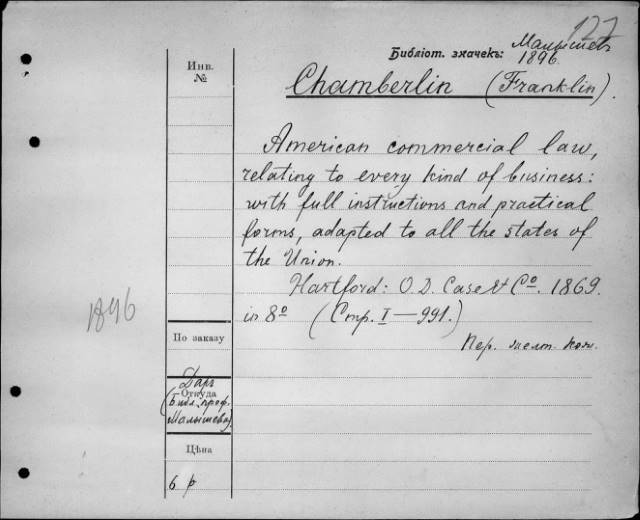 127
Библіот. значекъ: Малышев
1896
Инв.
№
Chamberlin (Franklin).
American commercial law,
relating to every kind of business:
with full instructions and practical
forms, adapted to all the states of
the Union.
Hartford: O. D. Case & Cº. 1869.
in 8º (Стр. I—991.)
1896
По заказу
Пер. желт. кож.
Даръ
Откуда
(Библ. проф.
Малышева)
Цѣна
6 р